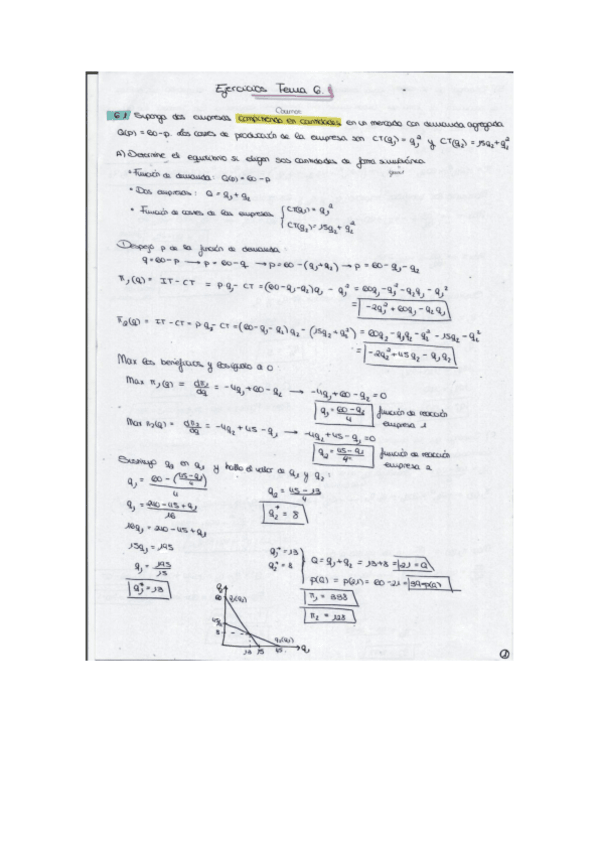 Ejercicios Tema 6.
Cournot
6.1 Suponga dos empresas compitiendo en cantidades en un mercado con demanda agregada
Q(p) = 60-p. Los costes de producción de la empresa son CT(q₁) = q₁² y CT(q₂) = 15q₂+q₂²
A) Determine el equilibrio si eligen sus cantidades de forma simultánea
• Función de demanda: Q(p) = 60-p
• Dos empresas: Q = q₁+q₂
• Función de costes de las empresas { CT(q₁) = q₁²
CT(q₂) = 15q₂ + q₂²
Despejo p de la función de demanda:
q=60-p → p = 60-q → p=60-(q₁+q₂) → p = 60-q₁-q₂
π₁(q) = IT-CT = p q₁- CT =(60-q₁-q₂)q₁ - q₁² = 60q₁-q₁²-q₂q₁-q₁²
= -2q₁²+60q₁-q₂q₁
π₂(q) = IT-CT = p q₂-CT =(60-q₁-q₂)q₂-(15q₂+q₂²) = 60q₂-q₁q₂-q₂²-15q₂-q₂²
= -2q₂²+45q₂-q₁q₂
Max los beneficios y los igualo a 0:
Max π₁(q) = dπ₁/dq = -4q₁+60-q₂ → -4q₁+60-q₂=0
q₁ = 60-q₂/4 función de reacción
empresa 1
Max π₂(q) = dπ₂/dq = -4q₂+45-q₁ → -4q₂+45-q₁=0
q₂ = 45-q₁/4 función de reacción
empresa 2
Sustituyo q₂ en q₁ y hallo el valor de q₁ y q₂:
q₁ = 60-(45-q₁/4)/4
q₂ = 45-13/4
q₁ = 240-45+q₁/16
q₂* = 8
16q₁ = 240-45+q₁
15q₁ = 195
q₁ = 195/15
q₁* = 13
q₁* = 13
q₂* = 8 } Q = q₁+q₂ = 13+8 = 21 = Q
p(Q) = p(21) = 60-21 = 39=p(Q)
π₁ = 338
π₂ = 128
q₂
60
q₁(q₂)
45
8
q₂(q₁)
13 15 45 q₁
1